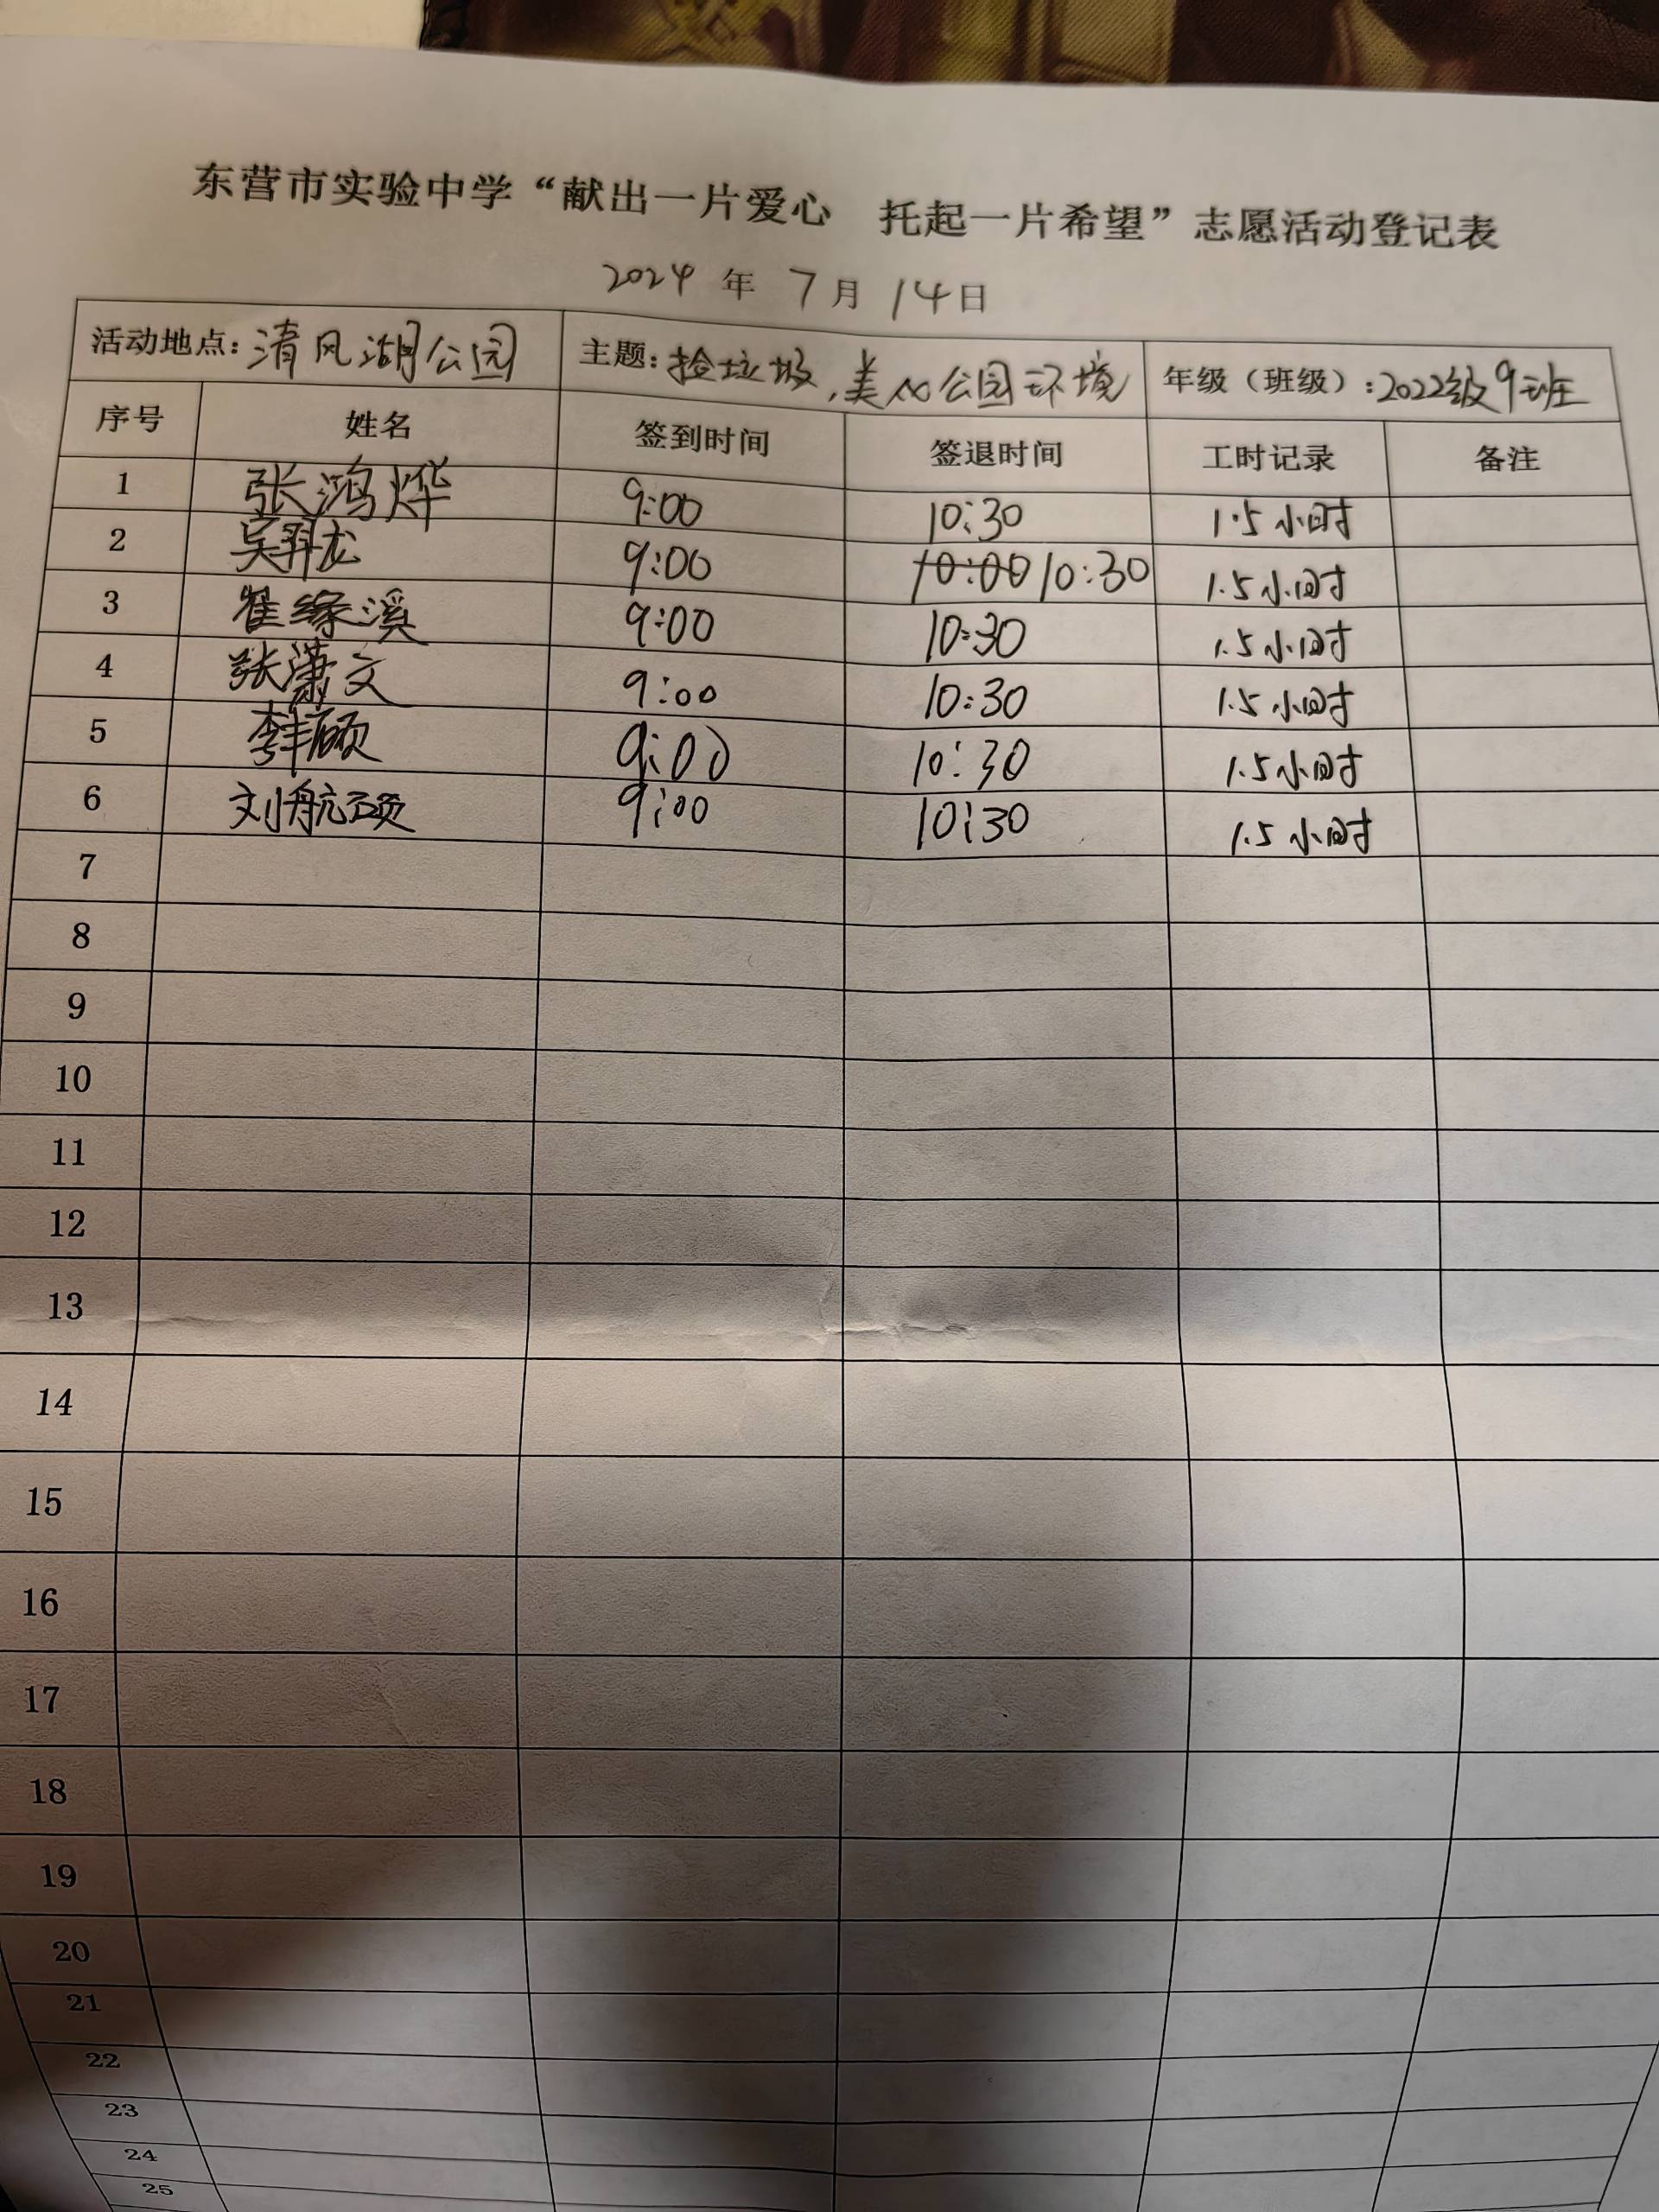 东营市实验中学“献出一片爱心 托起一片希望”志愿活动登记表
2024 年 7 月 14日
活动地点：清风湖公园 主题：捡垃圾，美化公园环境 年级（班级）：2022级9班
序号 姓名 签到时间 签退时间 工时记录 备注
1 张鸿烨 9:00 10:30 1.5小时
2 吴羿龙 9:00 10:00 10:30 1.5小时
3 崔缘溪 9:00 10:30 1.5小时
4 张潇文 9:00 10:30 1.5小时
5 9:00 10:30 1.5小时
6 刘航硕 9:00 10:30 1.5小时
7
8
9
10
11
12
13
14
15
16
17
18
19
20
21
22
23
24
25